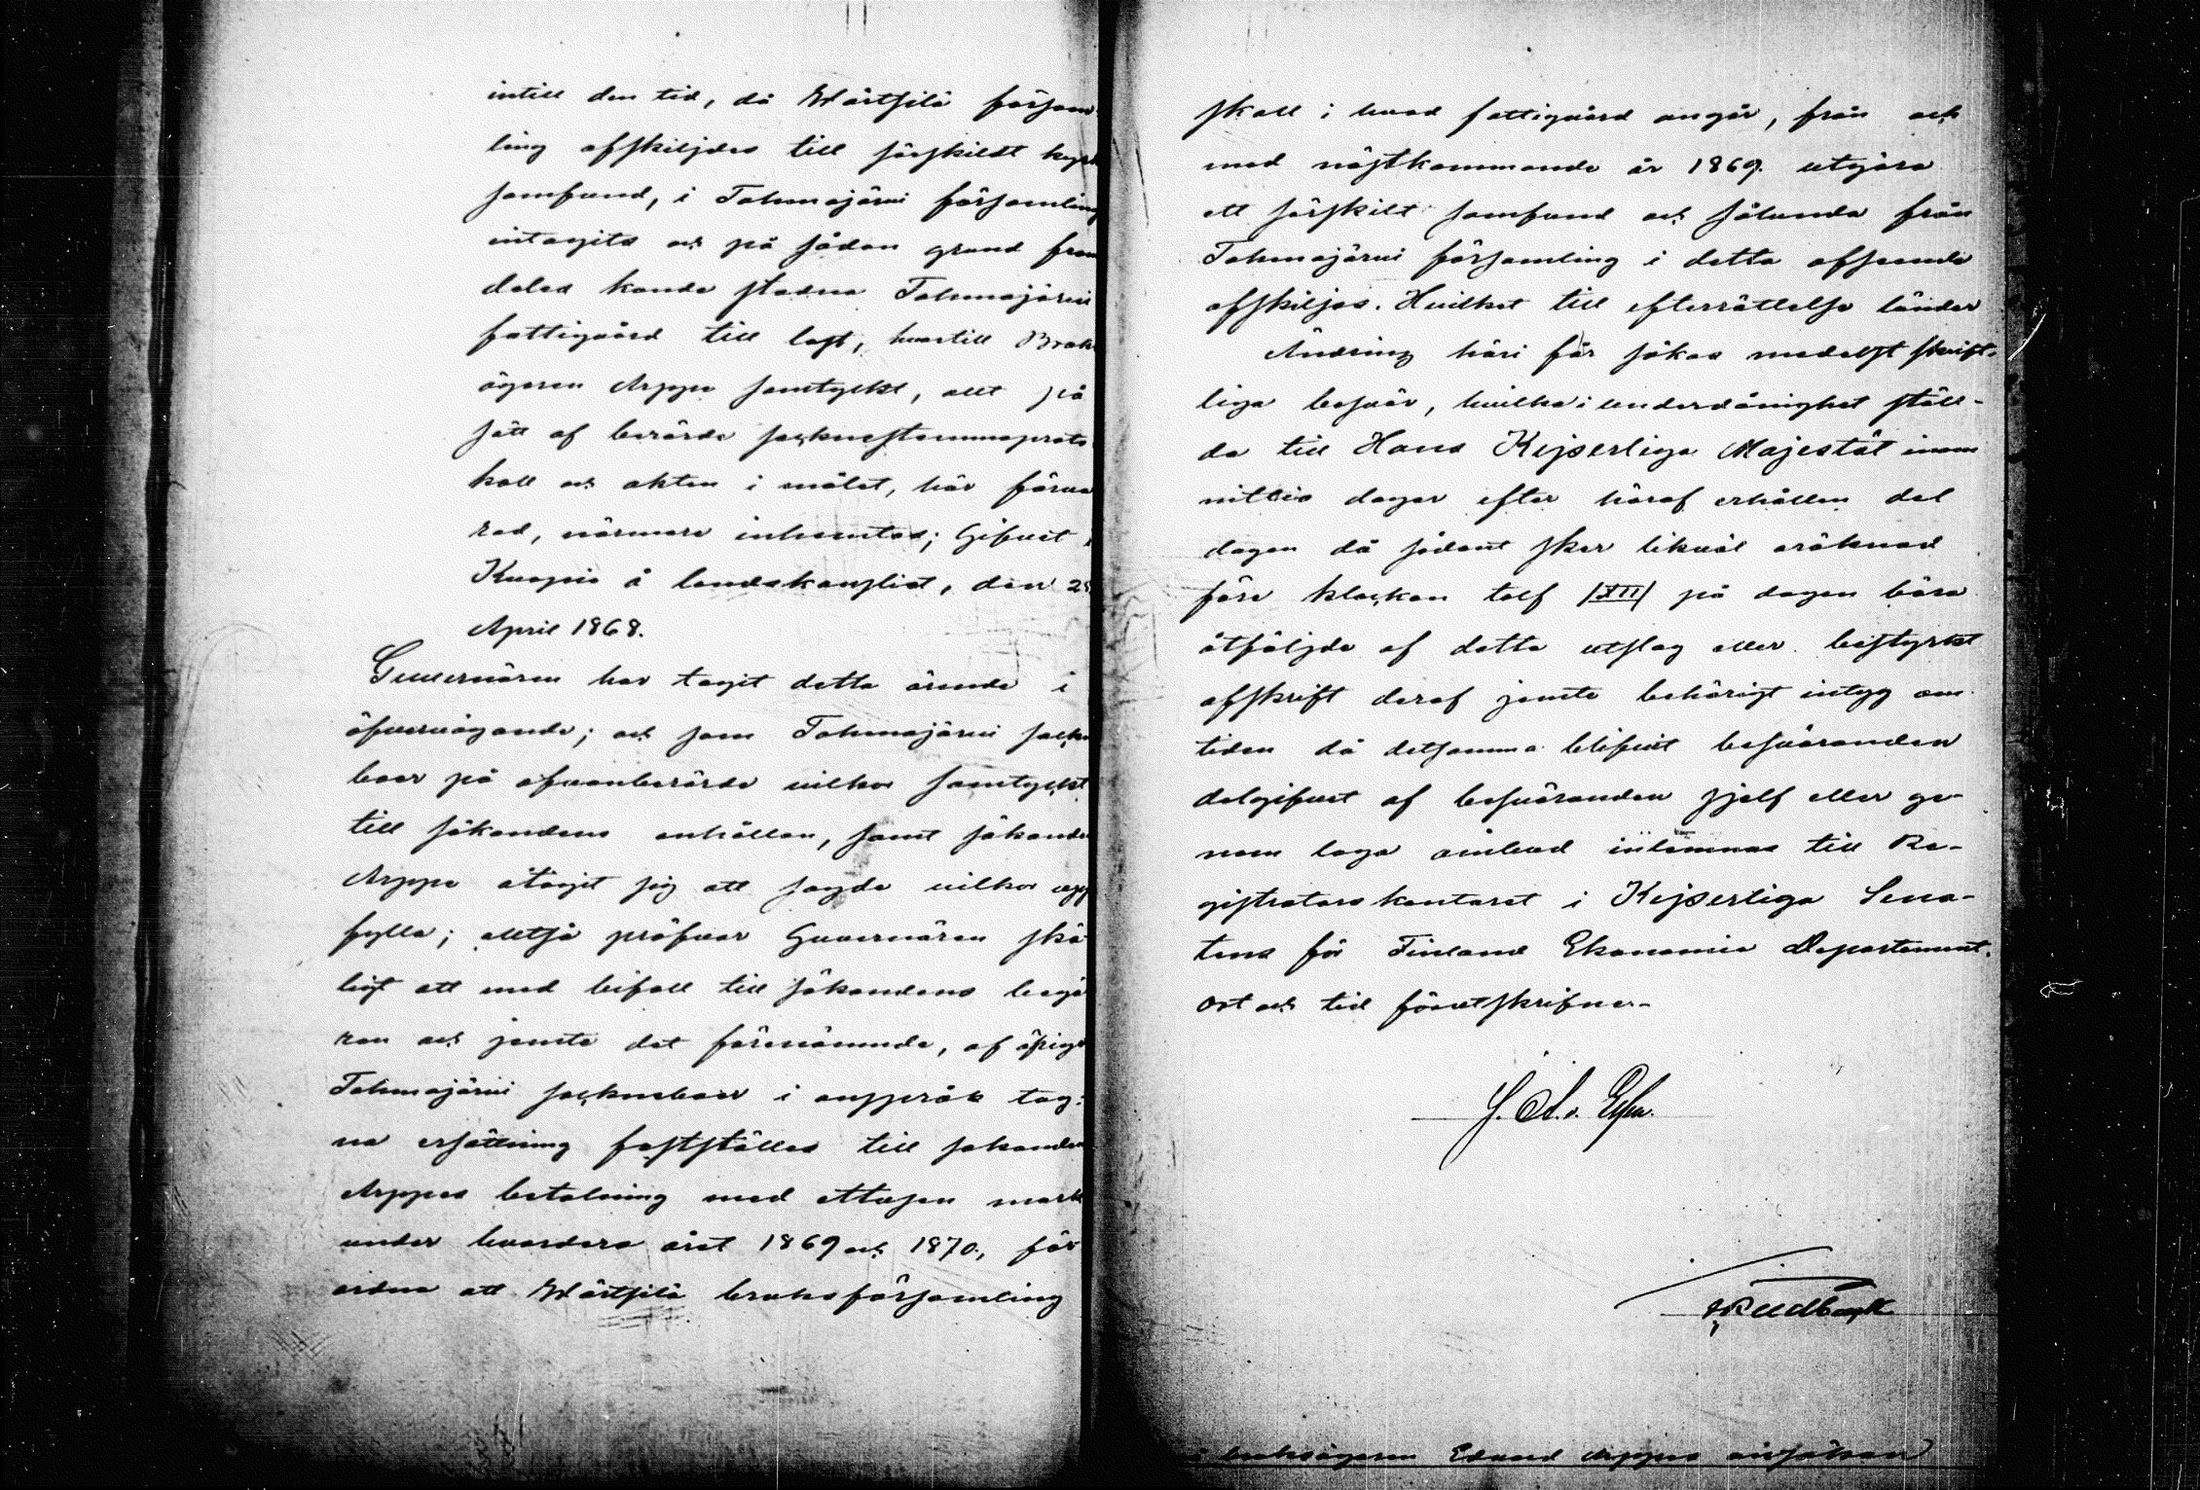 intill den tid, då Wärtsilä försam-
ling afskiljdes till särskildt kyrk
samfund, i Tohmajärvi församling
intagits och på sådan grund fram
deles kunde stadna Tohmajärvi
fattigvård till last, hvartill Bruks
ägaren Arppe samtyckt, allt på
sätt af berörde socknestämmoproto-
koll och akten i målet, här förva
rad, närmare inhemtas; Gifvet i
Kuopio å landskansliet, den 28
April 1868.
Guvernören har tagit detta ärende i
öfvervägande; och som Tohmajärvi sockne
boer på ofvanberörde vilkor samtyckt
till sökandens anhållan, samt sökanden
Arppe åtagit sig att sagde vilkor upp
fylla; alltså pröfvar Guvernören skä
ligt att med bifall till sökandens begä
ran och jemte det förenämnde, af öfrige
Tohmajärvi socknеboer i anspråk tag-
na ersättning fastställes till sökanden
Arppes betalning med ettusen mark
under hvardera året 1869 och 1870, för
ordna att Wärtsilä bruksförsamling
skall i hvad fattigvård angår, från och
med nästkommande år 1869 utgöra
ett särskilt samfund och sålunda från
Tohmajärvi församling i detta afseende
afskiljas. Hvilket till efterrättelse länder
Ändring häri får sökas medelst skrift-
liga besvär, hvilka i underdånighet ställ-
da till Hans Kejserliga Majestät inom
nittio dagar efter häraf erhållen del
dagen då sådant sker likväl oräknad
före klockan tolf /XII/ på dagen böra
åtföljde af detta utslag eller bestyrkt
afskrift deraf jemte behörigt intyg om
tiden då detsamma blifvit besväranden
delgifvet af besväranden sjelf eller ge-
nom laga ombud inlemnas till Re-
gistratorskontoret i Kejserliga Sena-
tens för Finland Ekonomie Departement.
Ort och tid förutskrifne.
bruksägaren Edvard Arppes ansökan